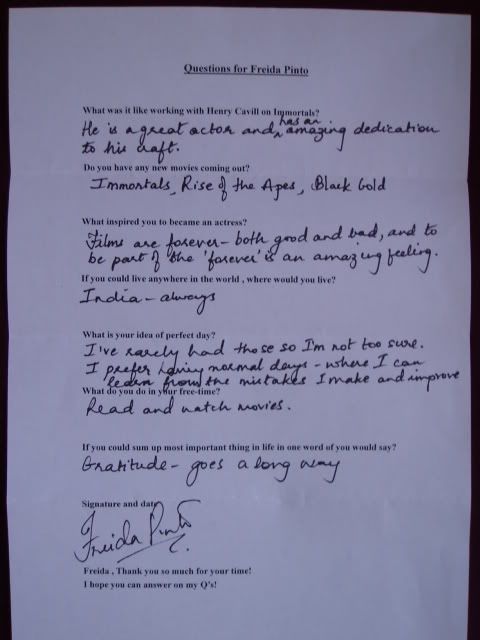 Questions for Freida Pinto
What was it like working with Henry Cavill on Immortals?
He is a great actor and has an amazing dedication
to his craft.
Do you have any new movies coming out?
Immortals, Rise of the Apes, Black Gold
What inspired you to became an actress?
Films are forever - both good and bad, and to
be part of the 'forever' is an amazing feeling.
If you could live anywhere in the world , where would you live?
India - always
What is your idea of perfect day?
I've rarely had those so I'm not too sure.
I prefer having normal days - where I can
learn from the mistakes I make and improve
What do you do in your free-time?
Read and watch movies.
If you could sum up most important thing in life in one word of you would say?
Gratitude - goes a long way
Signature and date
Freida Pinto
Freida , Thank you so much for your time!
I hope you can answer on my Q's!